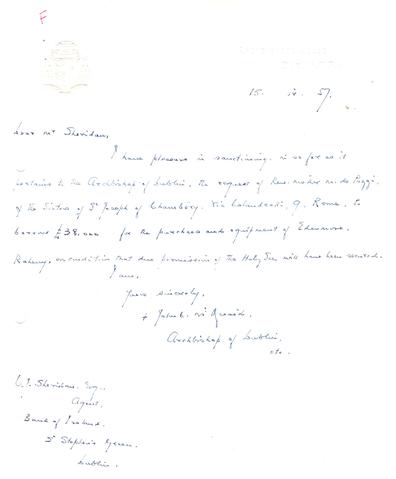 F
15. iv. 57.
Dear Mr Sheridan,
I have pleasure in sanctioning, in so far as it
pertains to the Archbishop of Dublin, the request of Rev. Mother M. de
of the Sisters of St Joseph of Chambéry, Via Casalmonferrato, 9, Rome, to
borrow £38,000 for the purchase and equipment of Edenmore,
Raheny, on condition that due permission of the Holy See will have been received.
I am,
Yours sincerely,
+ John C. McQuaid,
Archbishop of Dublin,
etc.
Sheridan, Esq.,
Agent,
Bank of Ireland,
St Stephen's Green,
Dublin.